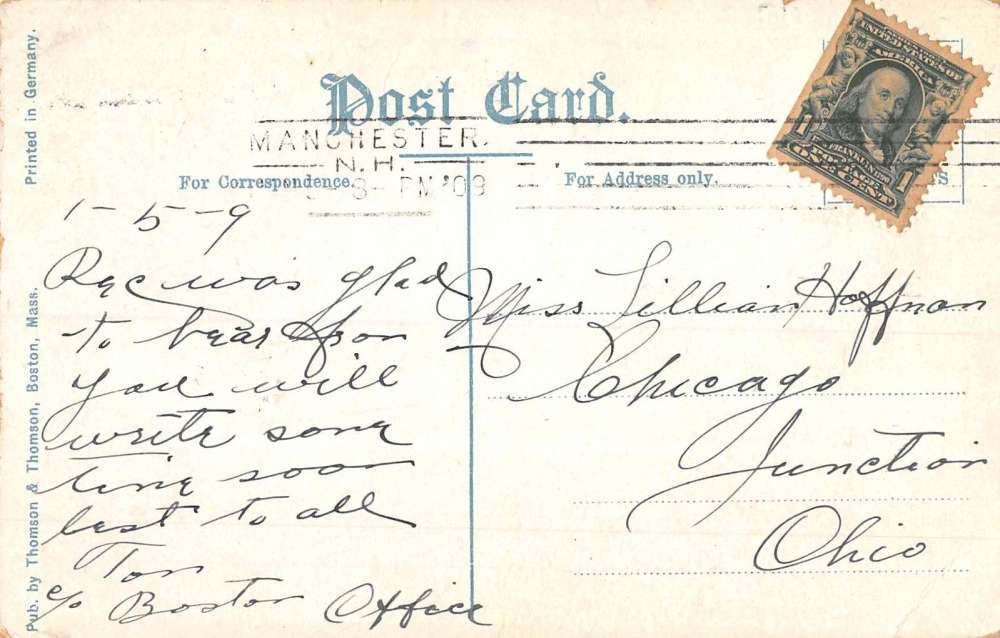 Post Card.
MANCHESTER.
N.H.
8- PM '09
For Correspondence.
For Address only.
UNITED STATES OF
AMERICA
FRANKLIN
1 ONE CENT 1
Printed in Germany.
Pub. by Thomson & Thomson, Boston, Mass.
1-5-9
Rec was glad
to hear from
you will
write some
time soon
best to all
Tom
c/o Boston Office
Miss Lillian Hoffman
Chicago
Junction
Ohio